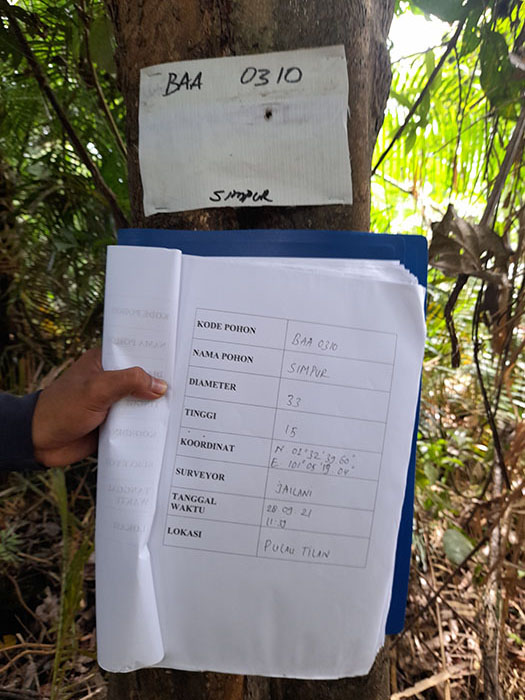 BAA 0310
SIMPUR
KODE POHON BAA 0310
NAMA POHON SIMPUR
DIAMETER 33
TINGGI 15
KOORDINAT N 01° 32' 39 60"
E 101° 05' 19 04"
SURVEYOR JAILANI
TANGGAL 28 09 21
WAKTU 11:39
LOKASI PULAU TILAN